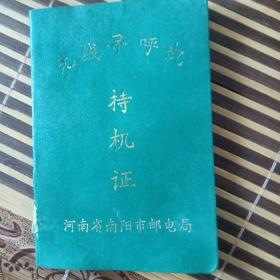 无线寻呼机
持
机
证
河南省南阳市邮电局